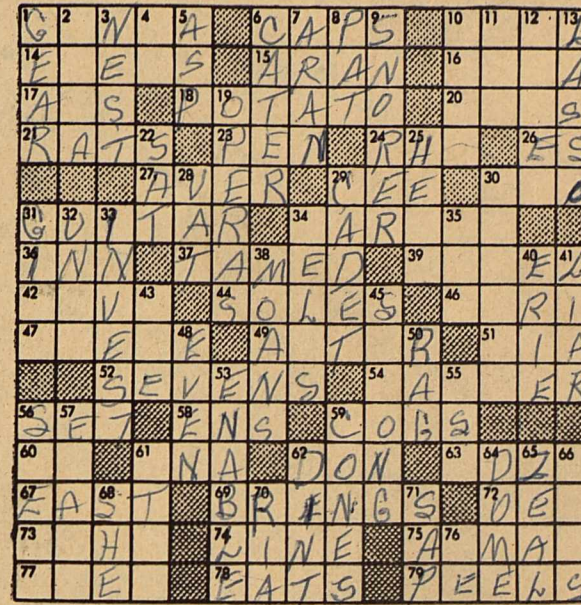 1 G 2 3 N 4 5 A 6 C 7 A 8 P 9 S 10 11 12 13
14 E E S 15 A R A N 16 A
17 A S 18 P 19 O T A T O 20 S
21 R A T 22 S 23 P E N 24 R 25 H 26 E S
27 A 28 V E R 29 C E E 30
31 G 32 U 33 I T A R 34 A R 35
36 I N N 37 T A 38 M E D 39 40 E 41 L
42 V 43 44 S O L E 45 S 46 R I
47 E 48 E 49 A T 50 R 51 I A
52 S E V 53 E N S 54 A 55 E R
56 S 57 E T 58 E N S 59 C O G S
60 61 N A 62 D O N 63 64 D 65 I 66
67 E A 68 S T 69 B 70 R I N G 71 S 72 O E
73 H 74 L I N E 75 A 76 M A
77 E 78 E A T S 79 P E E L S